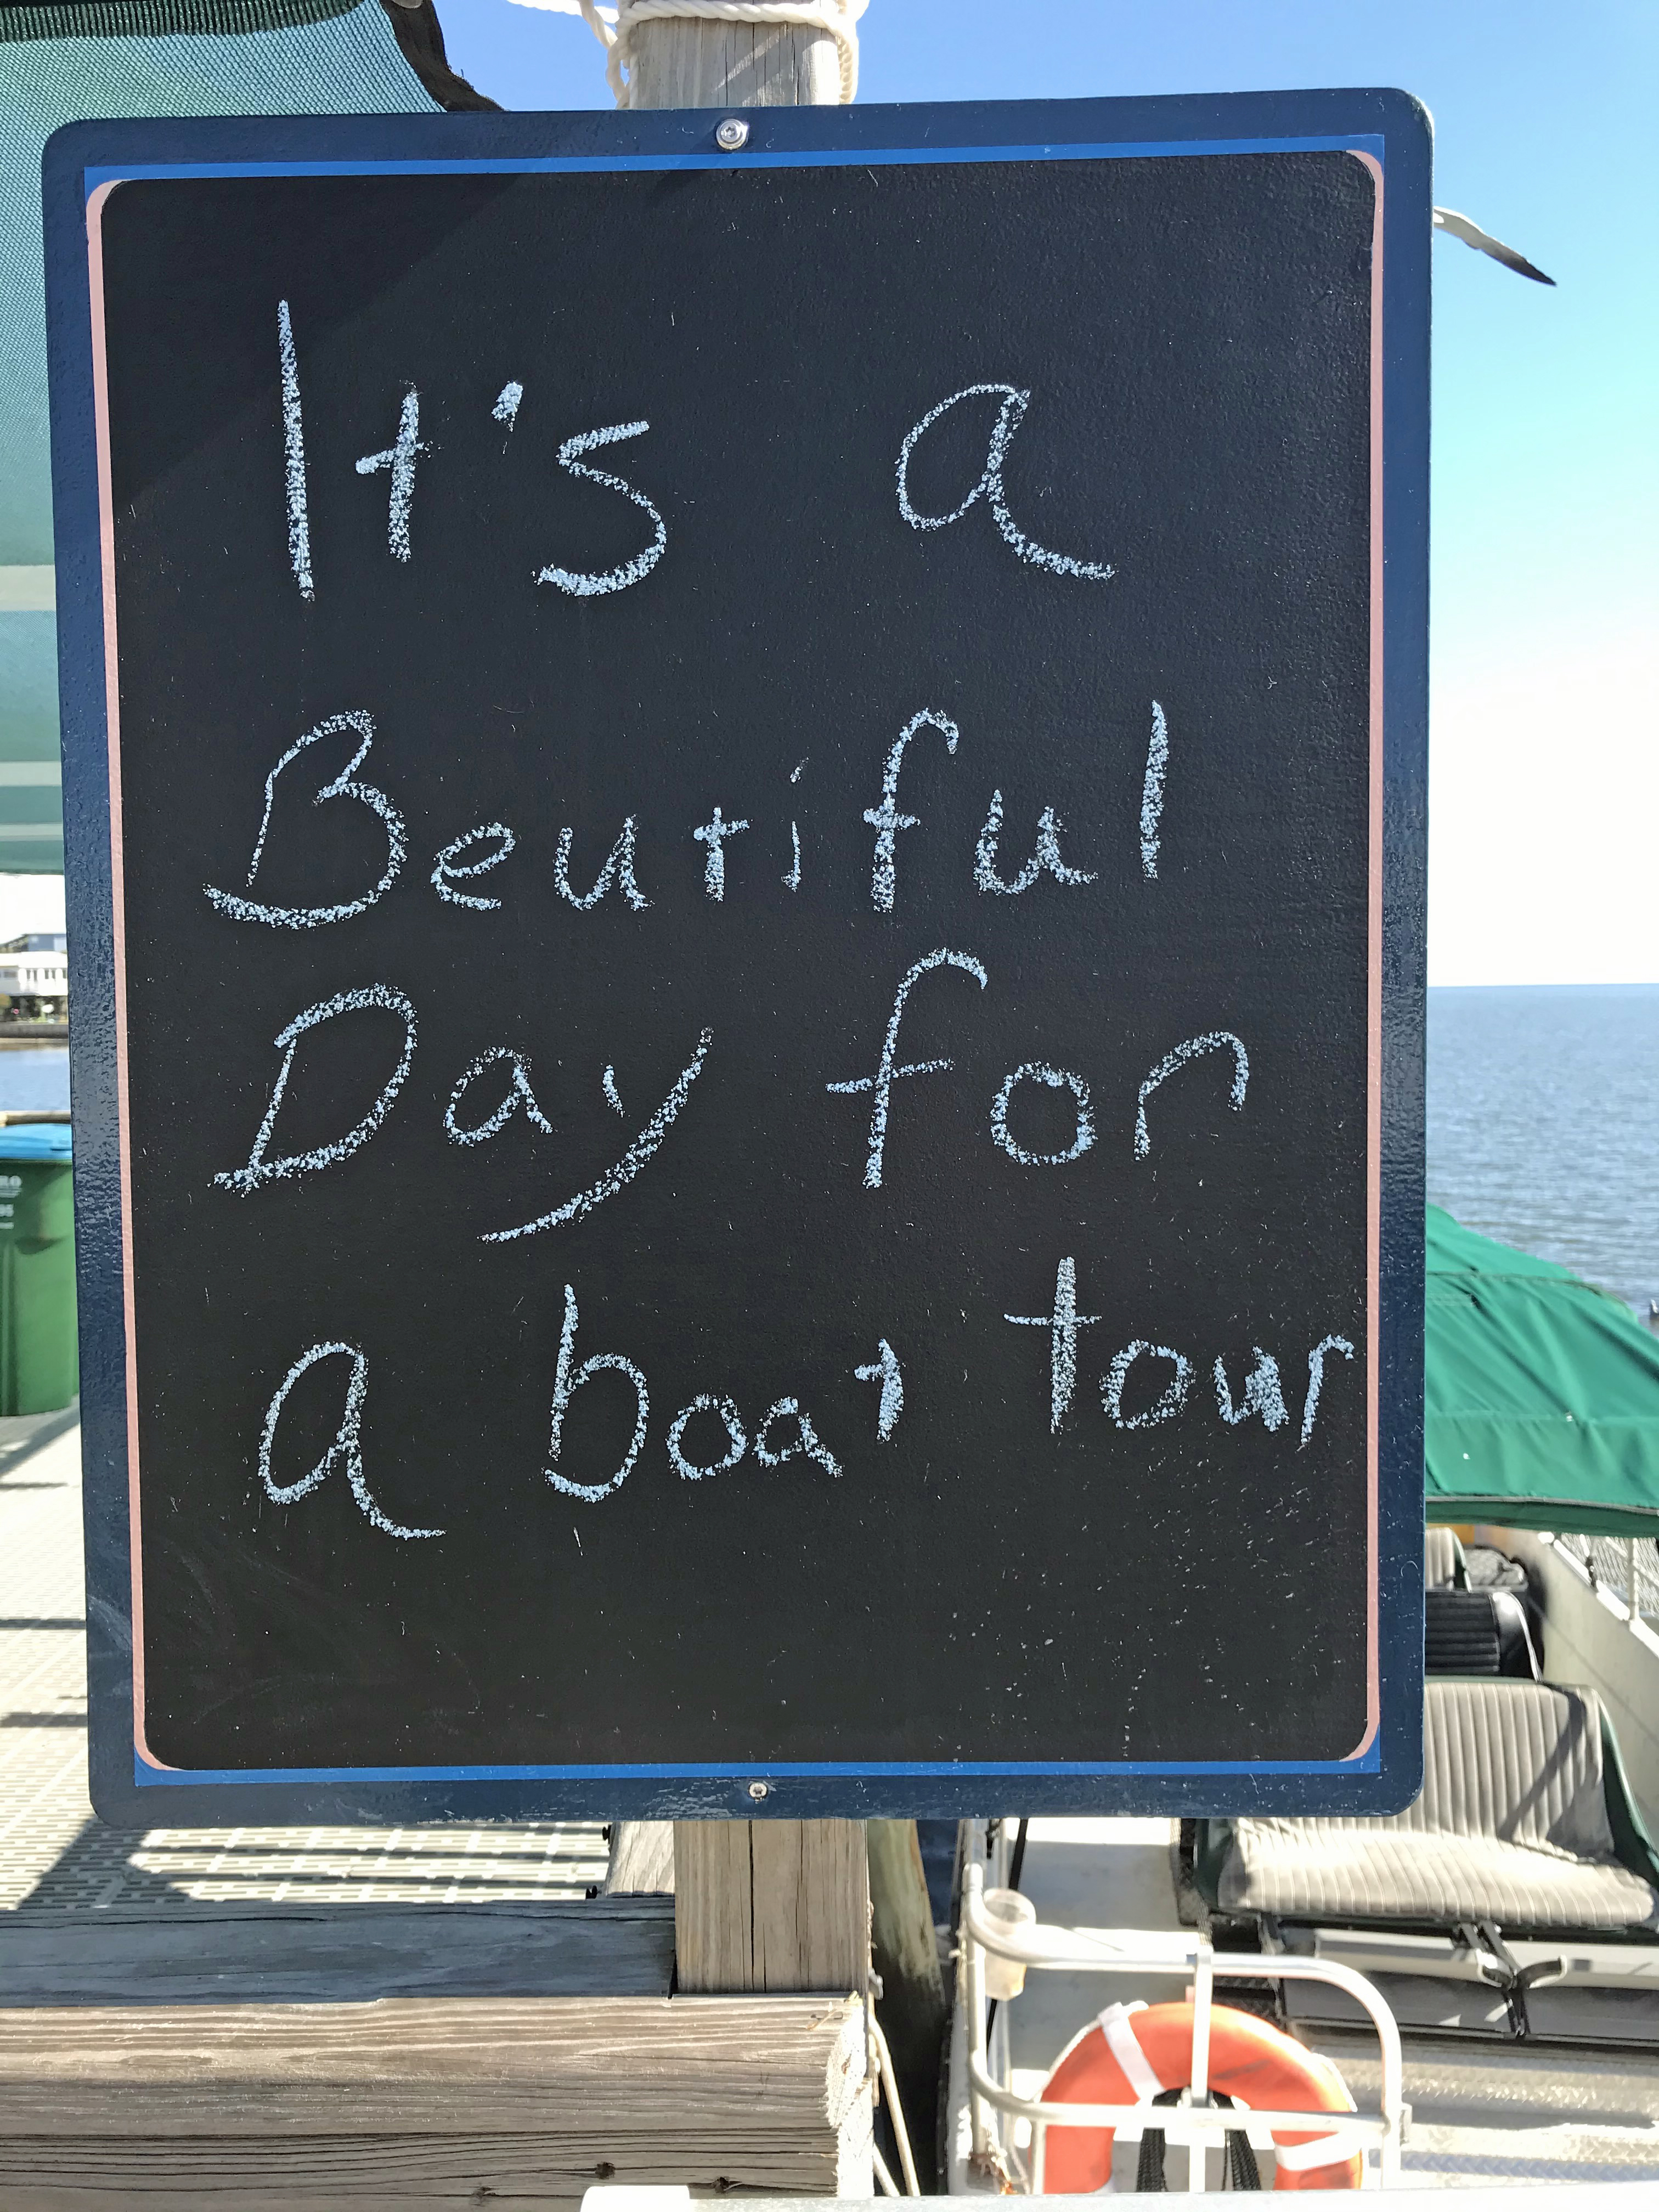 It's a
Beutiful
Day for
a boat tour